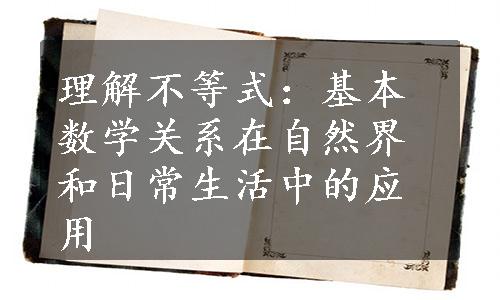 理解不等式：基本
数学关系在自然界
和日常生活中的应
用